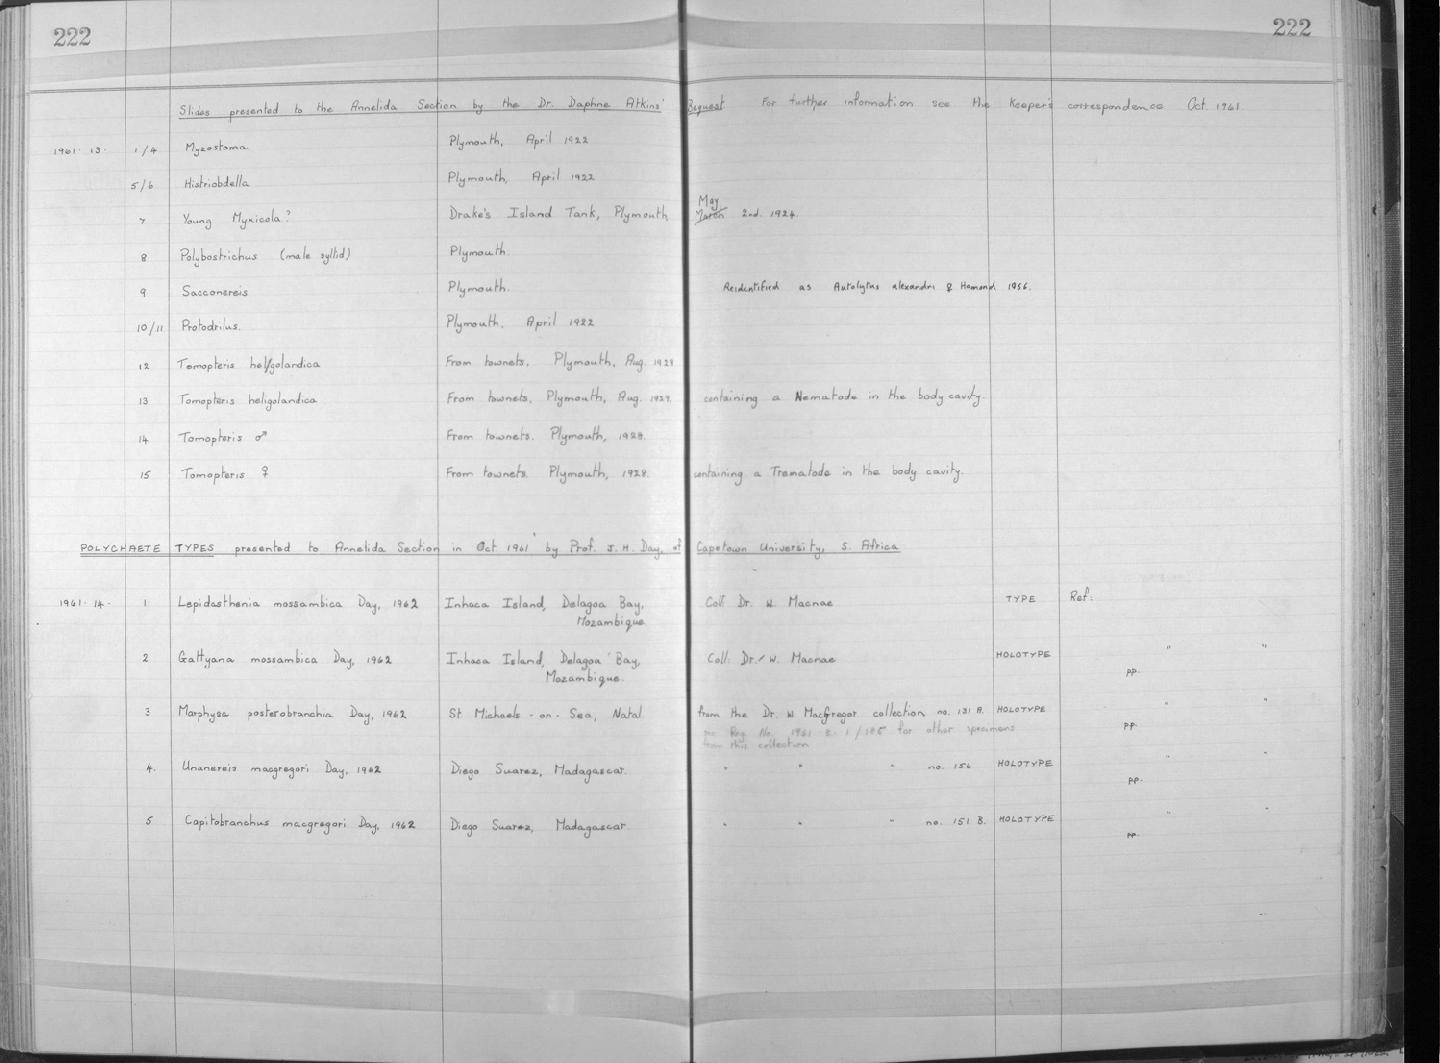 222 222
Slides presented to the Annelida Section by the Dr. Daphne Atkins' Bequest For further information see the Keeper's correspondence Oct. 1961.
1961. 13. 1/4 Myzostoma Plymouth, April 1922
5/6 Histriobdella Plymouth, April 1922
7 Young Myxicola? Drake's Island Tank, Plymouth May March 2nd. 1924.
8 Polybostrichus (male syllid) Plymouth.
9 Sacconereis Plymouth. Reidentified as Autolytus alexandri ♀ Hamond 1956.
10/11 Protodrilus. Plymouth, April 1922
12 Tomopteris helgolandica From townets. Plymouth, Aug.
13 Tomopteris heligolandica From townets. Plymouth, Aug. containing a Nematode in the body cavity.
14 Tomopteris ♂ From townets. Plymouth, 1928.
15 Tomopteris ♀ From townets. Plymouth, 1928. containing a Trematode in the body cavity.
POLYCHAETE TYPES presented to Annelida Section in Oct 1961 by Prof. J. H. Day, of Capetown University, S. Africa
1961. 14. 1 Lepidasthenia mossambica Day, 1962 Inhaca Island, Delagoa Bay, Coll Dr. W. Macnae TYPE Ref:
Mozambique
2 Gattyana mossambica Day, 1962 Inhaca Island, Delagoa Bay, Coll. Dr. W. Macnae HOLOTYPE " "
Mozambique. pp.
3 Marphysa posterobranchia Day, 1962 St Michaels-on-Sea, Natal from the Dr. W MacGregor collection no. 131 A. HOLOTYPE " "
see Reg. No. 1961 1/185 for other specimens pp.
from this collection
4. Unanereis macgregori Day, 1962 Diego Suarez, Madagascar. " " " no. 154 HOLOTYPE " "
pp.
5 Capitobranchus macgregori Day, 1962 Diego Suarez, Madagascar. " " " no. 151 B. HOLOTYPE " "
pp.